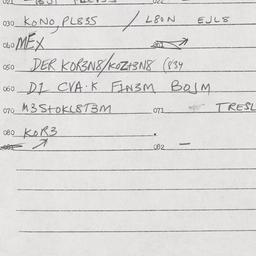 030 KONO, PL835 / L80N EJL8
040 MEX
050 DER KOR3N8/KOZT3N8 (834
060 DI CVA·K FIN3M BOJM
070 M3STOKL8T3M 071 TRESL
080 KOR3
082 —